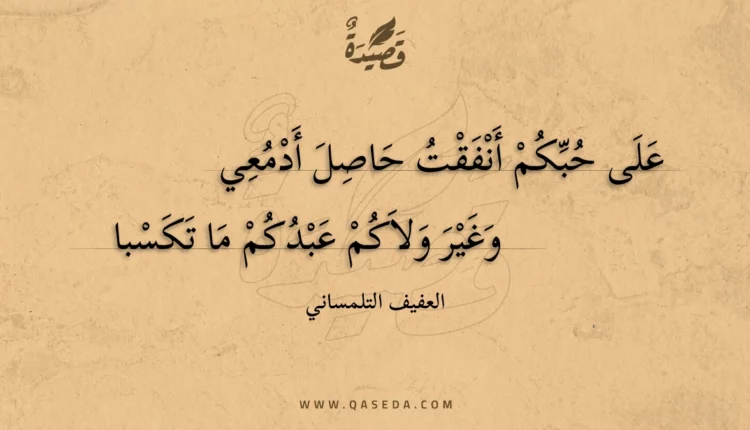 قَصِيدَةٌ
عَلَى حُبِّكُمْ أَنْفَقْتُ حَاصِلَ أَدْمُعِي
وَغَيْرَ وَلاَكُمْ عَبْدُكُمْ مَا تَكَسْبا
العفيف التلمساني
WWW.QASEDA.COM